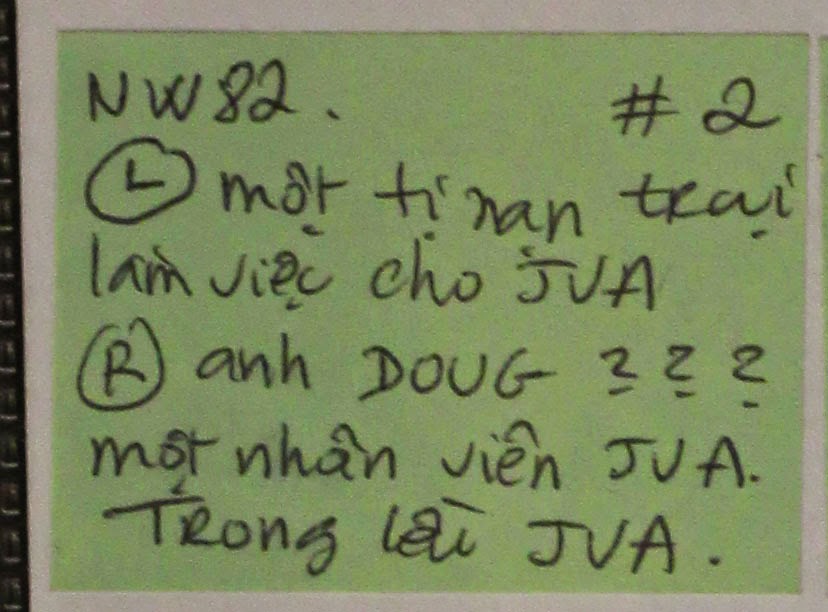 NW82. #2
Ⓛ một tị nạn trại
làm việc cho JVA
Ⓡ anh DOUG ???
một nhân viên JVA.
TRong lều JVA.